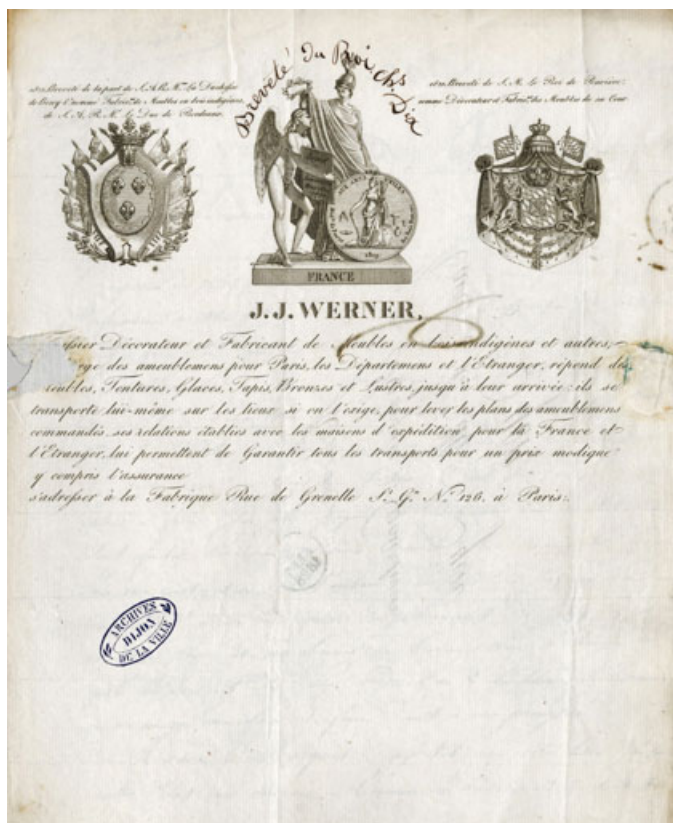 Brevêté du Roi Chs. Dix
et en Breveté de la part de S. A. R. Me. La Duchesse
de Berry & nommé Fabrict. de Meubles en bois indigènes
de S. A. R. Mr. Le Duc de Bordeaux.
et en Breveté de S. M. Le Roi de Bavière;
nommé Décorateur et Fabrict. des Meubles de sa Cour
FRANCE
J. J. WERNER,
Décorateur et Fabricant de Meubles en bois indigènes et autres,
des ameublemens pour Paris, les Départemens et l'Etranger, répond des
Meubles, Tentures, Glaces, Tapis, Bronzes et Lustres, jusqu'à leur arrivée: ils se
transporte lui-même sur les lieux si on l'exige, pour lever les plans des ameublemens
commandés. ses relations établies avec les maisons d'expédition pour la France et
l'Etranger, lui permettent de Garantir tous les transports pour un prix modique
y compris l'assurance
s'adresser à la Fabrique Rue de Grenelle St. Gn. No. 126, à Paris.
ARCHIVES
DIJON
DE LA VILLE